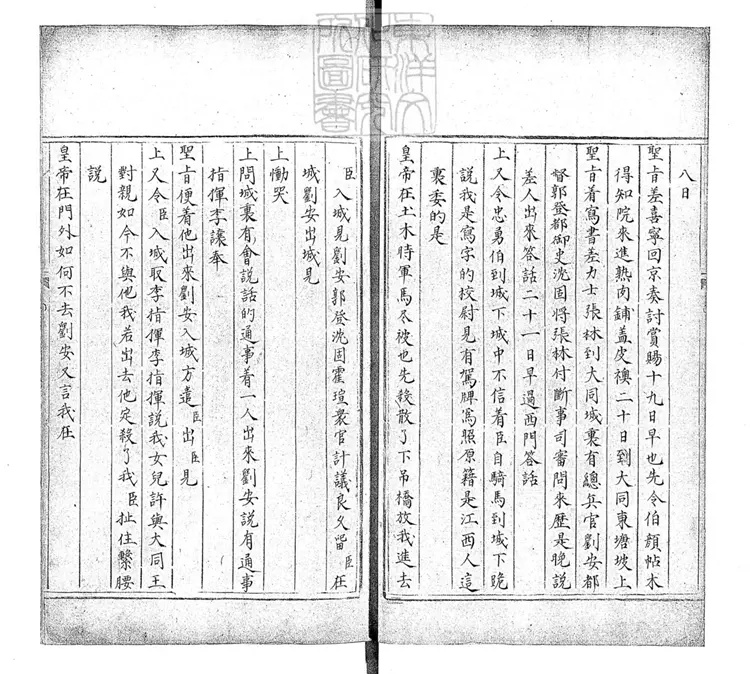 八日
聖旨差喜寧回京奏討賞賜十九日早也先令伯顏帖木
得知院來進熟肉鋪盖皮襖二十日到大同東塘坡上
聖旨着寫書差力士張林到大同城裏有總兵官劉安都
督郭登都御史沈固將張林付斷事司審問來歷是晚說
差人出來答話二十一日早過西門答話
上又令忠勇伯到城下城中不信着臣自騎馬到城下跪
說我是寫字的校尉見有駕牌爲照原籍是江西人這
裏委的是
皇帝在土木時軍馬尽被也先殺散了下吊橋放我進去
臣入城見劉安郭登沈固霍瑄衆官計議良久留臣在
城劉安出城見
上慟哭
上問城裏有會說話的通事着一人出來劉安說有通事
指揮李讓奉
聖旨便着他出來劉安入城方遣臣出臣見
上又令臣入城取李指揮李指揮說我女兒許與大同王
對親如今不與他我若出去他定殺了我臣扯住繫腰
說
皇帝在門外如何不去劉安又言我在
東洋文化研究所圖書